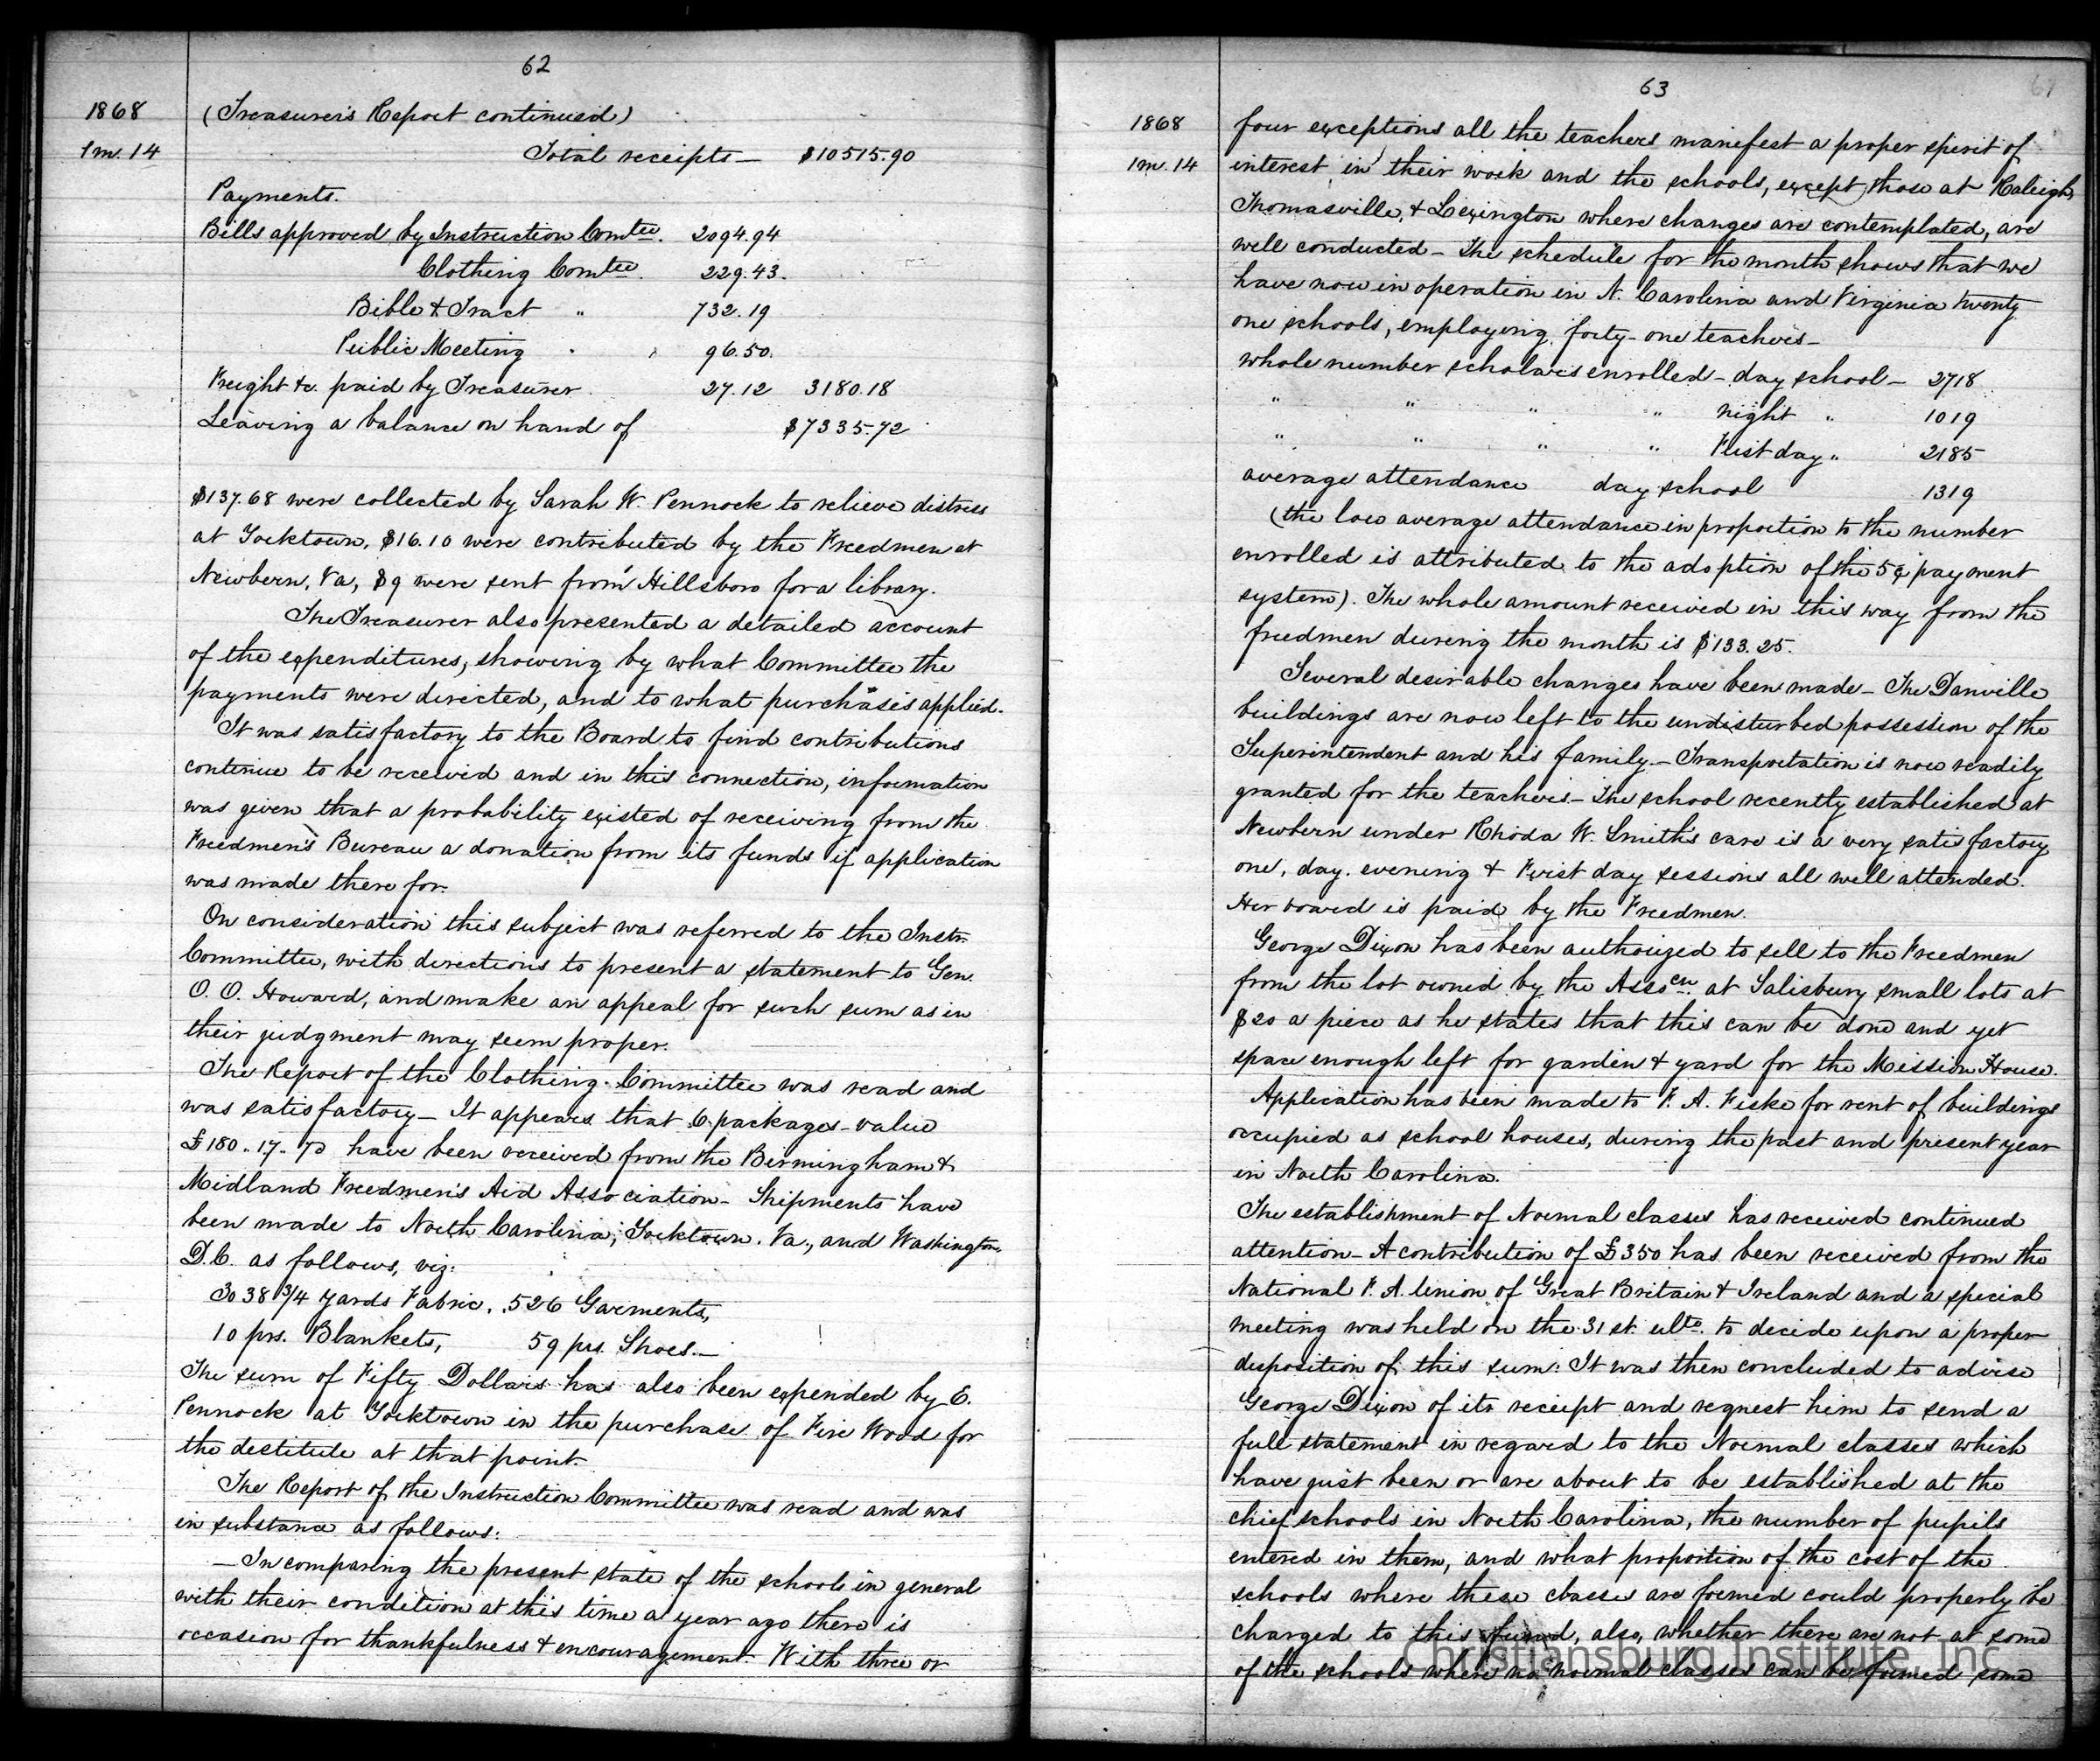 62
1868 (Treasurer's Report continued)
1m. 14 Total receipts — $10515.90
Payments.
Bills approved by Instruction Comtee. 2094.94
Clothing Comtee. 229.43.
Bible & Tract " 732.19
Public Meeting " 96.50.
Freight &c. paid by Treasurer 27.12 3180.18
Leaving a balance on hand of $7335.72
$137.68 were collected by Sarah W. Pennock to relieve distress
at Yorktown, $16.10 were contributed by the Freedmen at
Newbern, Va, $9 were sent from Hillsboro for a library.
The Treasurer also presented a detailed account
of the expenditures, showing by what Committee the
payments were directed, and to what purchases applied.
It was satisfactory to the Board to find contributions
continue to be received and in this connection, information
was given that a probability existed of receiving from the
Freedmen's Bureau a donation from its funds if application
was made there for.
On consideration this subject was referred to the Instr.
Committee, with directions to present a statement to Gen.
O. O. Howard, and make an appeal for such sum as in
their judgment may seem proper.
The Report of the Clothing Committee was read and
was satisfactory — It appears that 6 packages - value
£180.. 17.. 7d have been received from the Birmingham &
Midland Freedmen's Aid Association — Shipments have
been made to North Carolina, Yorktown. Va., and Washington,
D.C. as follows, viz:
3038 3/4 yards Fabric, 526 Garments,
10 prs. Blankets, 59 prs. Shoes. —
The sum of Fifty Dollars has also been expended by E.
Pennock at Yorktown in the purchase of Fire Wood for
the destitute at that point.
The Report of the Instruction Committee was read and was
in substance as follows:
— In comparing the present state of the schools in general
with their condition at this time a year ago there is
occasion for thankfulness & encouragement. With three or
63
1868 four exceptions all the teachers manifest a proper spirit of
1m. 14 interest in their work and the schools, except those at Raleigh,
Thomasville, & Lexington where changes are contemplated, are
well conducted — The schedule for the month shows that we
have now in operation in N. Carolina and Virginia twenty
one schools, employing forty-one teachers —
whole number scholars enrolled — day school — 2718
" " " " night " 1019
" " " " First day " 2185
average attendance day school 1319
(the low average attendance in proportion to the number
enrolled is attributed to the adoption of the 5¢ payment
system). The whole amount received in this way from the
freedmen during the month is $133.25.
Several desirable changes have been made — The Danville
buildings are now left to the undisturbed possession of the
Superintendent and his family — Transportation is now readily
granted for the teachers — The school recently established at
Newbern under Rhoda W. Smith's care is a very satisfactory
one, day. evening & First day sessions all well attended.
Her board is paid by the Freedmen.
George Dixon has been authorized to sell to the Freedmen
from the lot owned by the Assocn. at Salisbury small lots at
$20 a piece as he states that this can be done and yet
space enough left for garden & yard for the Mission House.
Application has been made to F. A. Fiske for rent of buildings
occupied as school houses, during the past and present year
in North Carolina.
The establishment of Normal classes has received continued
attention — A contribution of £350 has been received from the
National F. A. Union of Great Britain & Ireland and a special
meeting was held on the 31st. ulto. to decide upon a proper
disposition of this sum: It was then concluded to advise
George Dixon of its receipt and request him to send a
full statement in regard to the Normal classes which
have just been or are about to be established at the
chief schools in North Carolina, the number of pupils
entered in them, and what proportion of the cost of the
schools where these classes are formed could properly be
charged to this fund, also, whether there are not at some
of the schools where no normal classes can be formed some
Christiansburg Institute, Inc.